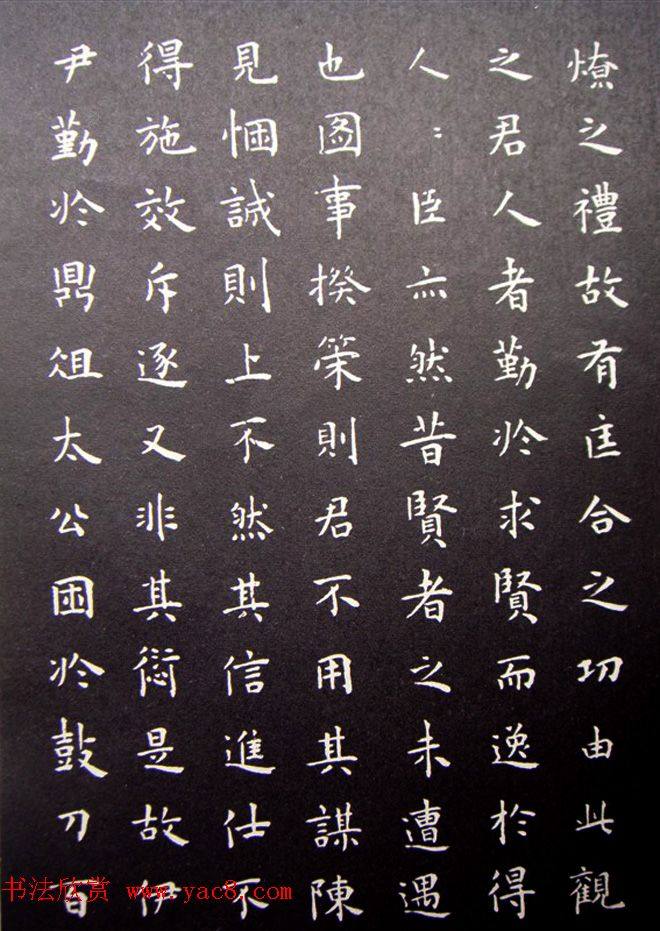 燎之禮故有匡合之功由此觀
之君人者勤扵求賢而逸於得
人〻臣亦然昔賢者之未遭遇
也圖事揆策則君不用其謀陳
見悃誠則上不然其信進仕不
得施效斥逐又非其愆是故伊
尹勤扵鼎俎太公困扵鼓刀百
书法欣赏 www.yac8.com